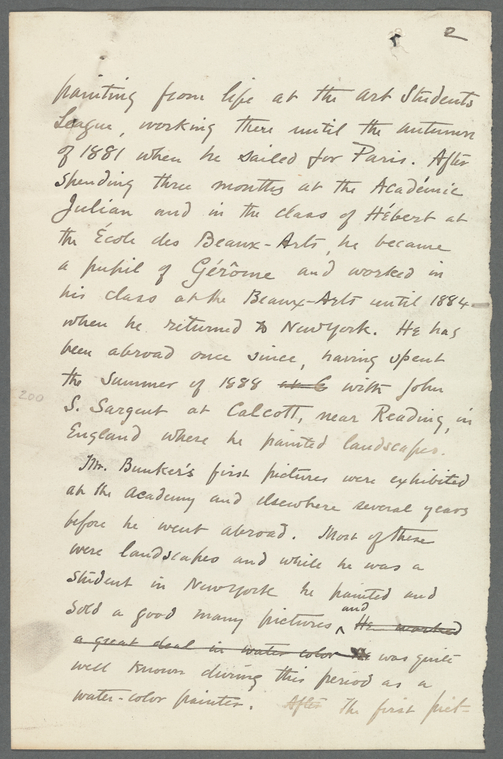 2
painting from life at the Art Students
League, working there until the autumn
of 1881 when he sailed for Paris. After
spending three months at the Académie
Julian and in the class of Hébert at
the École des Beaux-Arts, he became
a pupil of Gérôme and worked in
his class at the Beaux-Arts until 1884
when he returned to New York. He has
been abroad once since, having spent
the summer of 1888 at C with John
200
S. Sargent at Calcott, near Reading, in
England where he painted landscapes.
Mr. Bunker's first pictures were exhibited
at the Academy and elsewhere several years
before he went abroad. Most of these
were landscapes and while he was a
student in New York he painted and
sold a good many pictures, and He worked
a great deal in water color was quite
well known during this period as a
water-color painter. After The first pict-